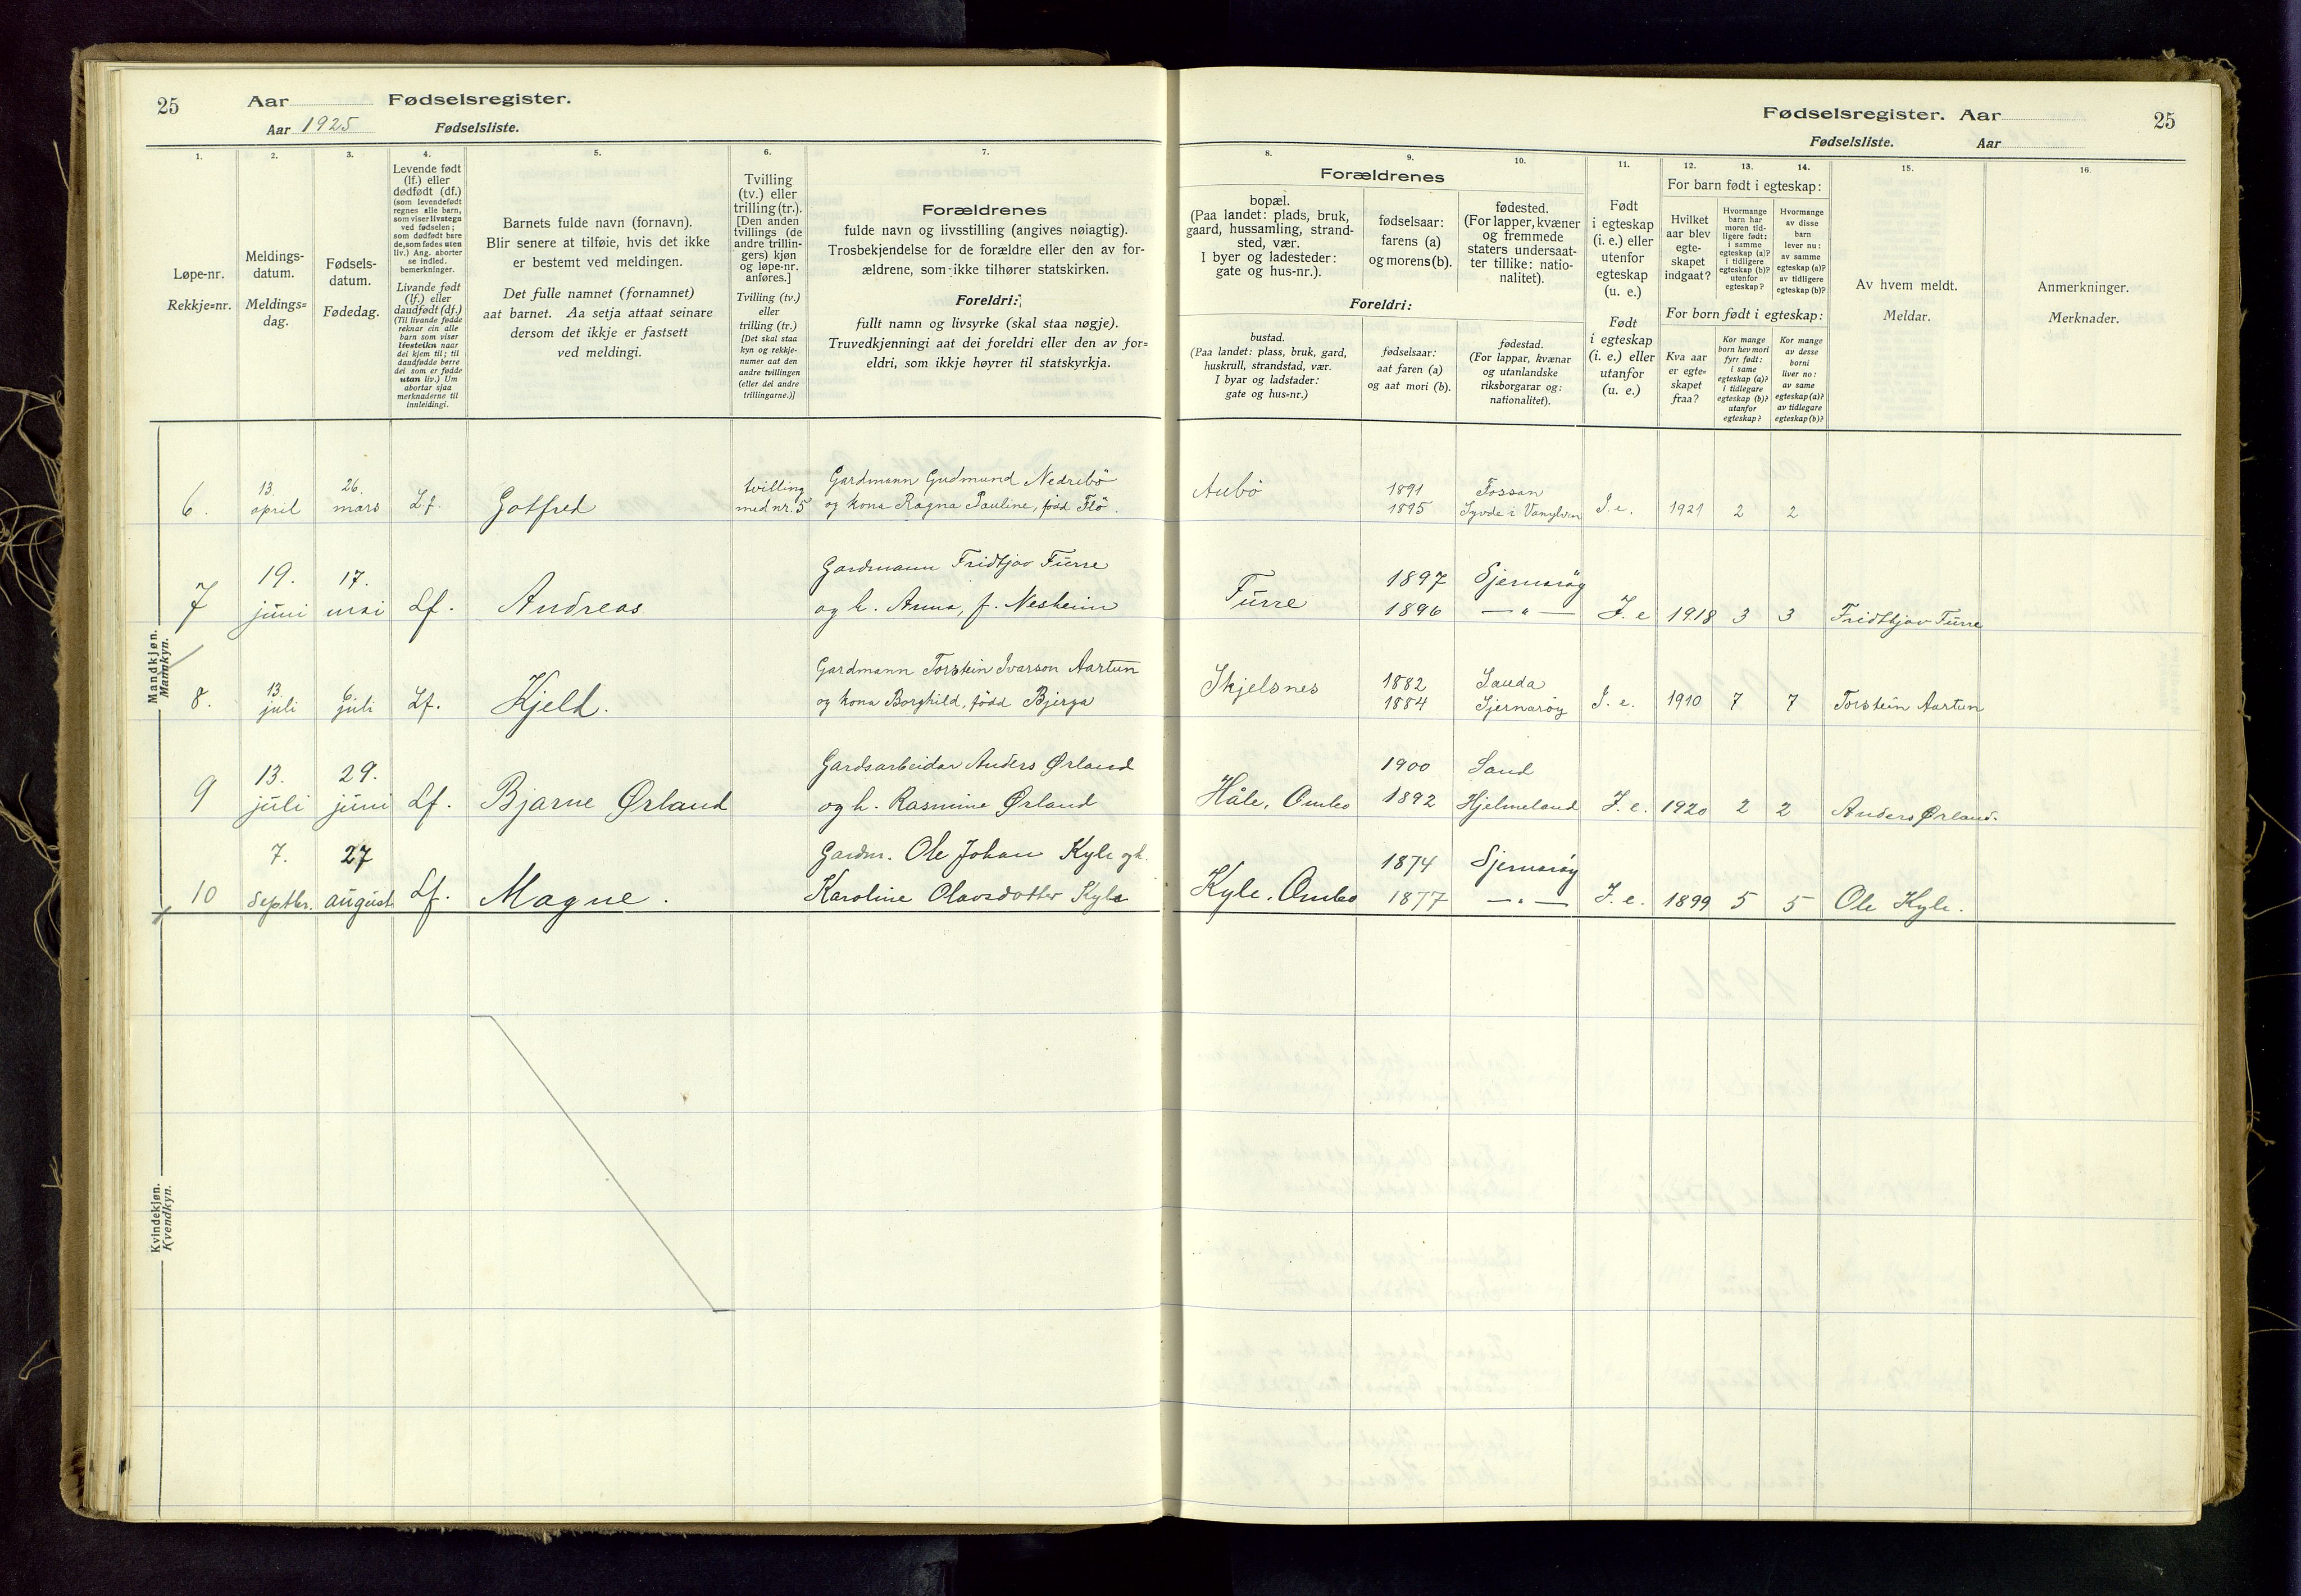 25 Aar Fødselsregister.
Aar 1925 Fødselsliste.
1.
Løpe-nr.
Rekkje=nr.
2.
Meldings-
datum.
Meldings=
dag.
3.
Fødsels-
datum.
Fødedag.
4.
Levende født
(lf.) eller
dødfødt (df.)
(som levendefødt
regnes alle barn,
som viser livstegn
ved fødselen;
som dødfødt bare
de, som fødes uten
liv.) Ang. aborter
se indled.
bemerkninger.
Livande født
(lf.) eller
daudfødt (df.)
(Til livande fødde
reknar ein alle
barn som viser
livsteikn naar
dei kjem til; til
daudfødde berre
dei som er fødde
utan liv.) Um
abortar sjaa
merknaderne til
innleidingi.
5.
Barnets fulde navn (fornavn).
Blir senere at tilføie, hvis det ikke
er bestemt ved meldingen.
Det fulle namnet (fornamnet)
aat barnet. Aa setja attaat seinare
dersom det ikkje er fastsett
ved meldingi.
6.
Tvilling
(tv.) eller
trilling (tr.).
[Den anden
tvillings (de
andre trillin-
gers) kjøn
og løpe-nr.
anføres.]
Tvilling (tv.)
eller
trilling (tr.)
[Det skal staa
kyn og rekkje-
numer aat den
andre tvillingen
(eller dei andre
trillingarne.)]
7.
Forældrenes
fulde navn og livsstilling (angives nøiagtig).
Trosbekjendelse for de forældre eller den av for-
ældrene, som ikke tilhører statskirken.
Foreldri:
fullt namn og livsyrke (skal staa nøgje).
Truvedkjenningi aat dei foreldri eller den av for=
eldri, som ikkje høyrer til statskyrkja.
Mandkjøn.
Mannkyn.
6. 13. april 26. mars Lf. Gotfred tvilling med nr. 5 Gardmann Gudmund Nedrebö
og kona Ragna Pauline, född Flö.
7 19. juni 17. mai Lf. Andreas Gardmann Fridtjov Furre
og h. Anna, f. Nesheim
8. 13. juli 6. juli Lf. Kjeld. Gardmann Torstein Ivarson Aartun
og kona Borghild, född Bjerga
9 13. juli 29. juni Lf. Bjarne Ørland Gardsarbeidar Anders Ørland
og h. Rasmine Ørland
10 7. septbr. 27 august Lf. Magne. Gardm. Ole Johan Kyle og h.
Karoline Olavsdotter Kyle
Kvindekjøn.
Kvendkyn.
Fødselsregister. Aar 25
Fødselsliste. Aar
8.
Forældrenes
bopæl.
(Paa landet: plads, bruk,
gaard, hussamling, strand-
sted, vær.
I byer og ladesteder:
gate og hus-nr.).
Foreldri:
bustad.
(Paa landet: plass, bruk, gard,
huskrull, strandstad, vær.
I byar og ladstader:
gate og hus=nr.)
9.
fødselsaar:
farens (a)
og morens (b).
fødselsaar:
aat faren (a)
og aat mori (b).
10.
fødested.
(For lapper, kvæner
og fremmede
staters undersaat-
ter tillike: natio-
nalitet).
fødestad.
(For lappar, kvænar
og utanlandske
riksborgarar og:
nationalitet).
11.
Født
i egteskap
(i. e.) eller
utenfor
egteskap
(u. e.)
Født
i egteskap
(i. e.) eller
utanfor
(u. e.)
12. 13. 14.
For barn født i egteskap:
Hvilket
aar blev
egte-
skapet
indgaat?
Hvormange
barn har
moren tid-
ligere født:
i samme
egteskap (a)?
i tidligere
egteskap (b)?
utenfor
egteskap?
Hvormange
av disse
barn
lever nu:
av samme
egteskap (a)?
av tidligere
egteskap (b)?
For born født i egteskap:
Kva aar
er egte=
skapet
fraa?
Kor mange
born hev mori
fyrr født:
i same
egteskap (a)?
i tidlegare
egteskap (b)?
utanfor
egteskap?
Kor mange
av desse
borni
liver no:
av same
egteskap (a)?
av tidlegare
egteskap (b)?
15.
Av hvem meldt.
Meldar.
16.
Anmerkninger.
Merknader.
Aubö 1891 Fossan
1895 Syvde i Vanylven I. e. 1921 2 2
Furre 1897 Sjernarøy
1896 — " — I. e 1918 3 3 Fridtjov Furre
Skjelsnes 1882 Sauda
1884 Sjernarøy I. e. 1910 7 7 Torstein Aartun
Håle, Ombo 1900 Sand
1892 Hjelmeland I. e. 1920 2 2 Anders Ørland.
Kyle, Ombo 1874 Sjernarøy
1877 — " — I. e. 1899 5 5 Ole Kyle.